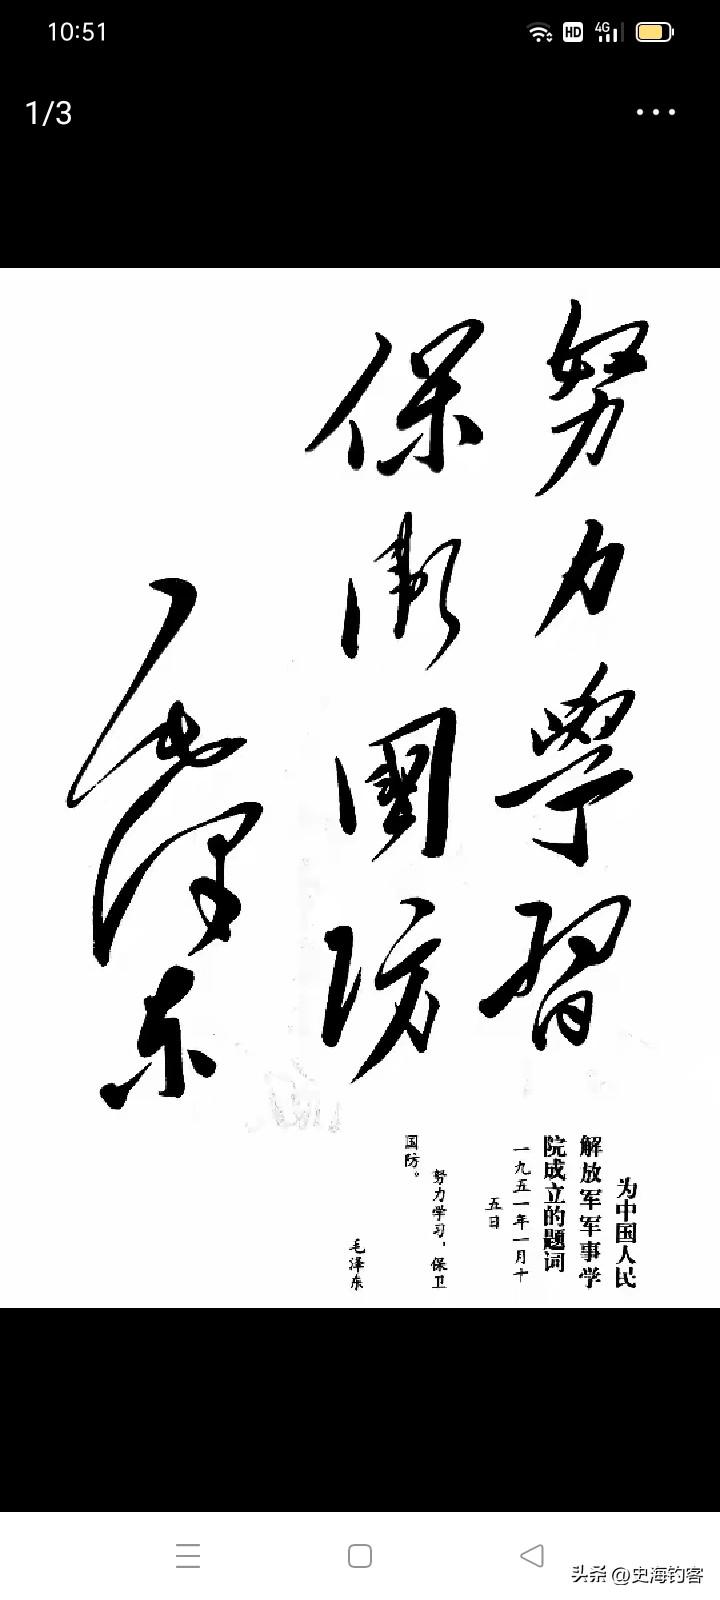 10:51
HD 4G
1/3
努力學習
保衛國防
毛泽东
为中国人民
解放军军事学
院成立的题词
一九五一年一月十
五日
努力学习，保卫
国防。
毛泽东
头条 @史海钓客